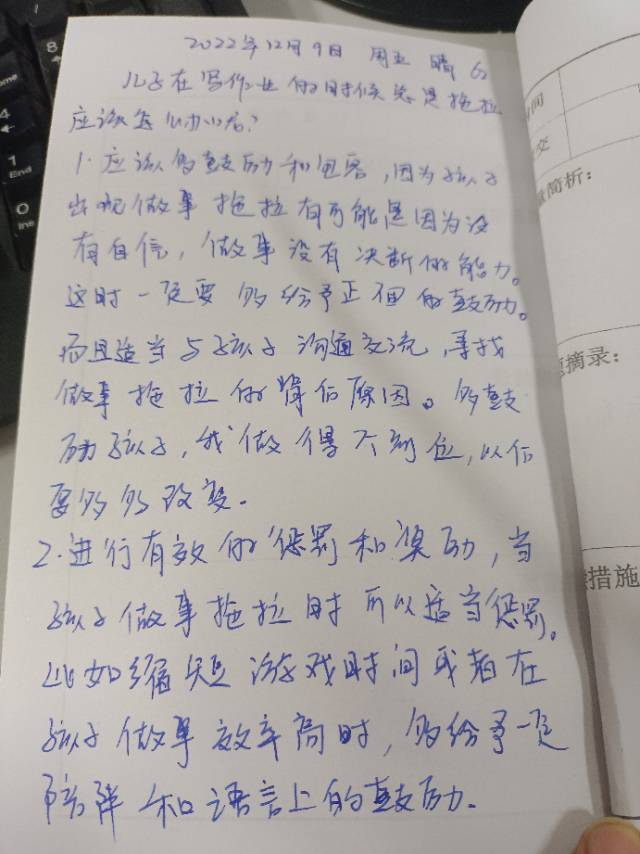 2022年12月9日 周五 晴
儿子在写作业的时候总是拖拉
应该怎么办呢?
1.应该多鼓励和包容,因为孩子
出现做事拖拉有可能是因为没
有自信,做事没有决断的能力。
这时一定要多给予正面的鼓励。
而且适当与孩子沟通交流,寻找
做事拖拉的背后原因。多鼓
励孩子,我做得不到位,以后
要多多改变。
2.进行有效的惩罚和奖励,当
孩子做事拖拉时可以适当惩罚。
比如缩短游戏时间或者在
孩子做事效率高时,多给予一定
陪伴和语言上的鼓励.
间
交
简析:
摘录:
措施
8
4
1
End
0
Ins